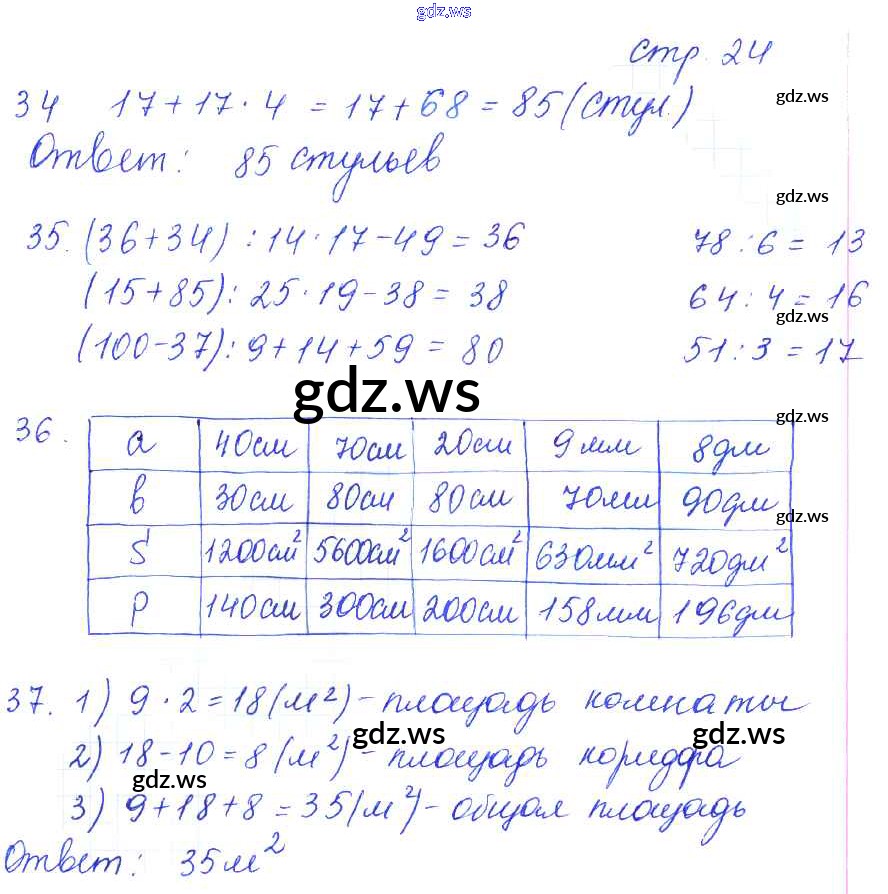 gdz.ws
стр. 24
34 17+17·4 = 17+68 = 85 (стул.)
gdz.ws
Ответ: 85 стульев
gdz.ws
35. (36+34) : 14·17-49 = 36 78 : 6 = 13
(15+85) : 25·19-38 = 38 64 : 4 = 16
gdz.ws
(100-37) : 9+14+59 = 80 51 : 3 = 17
gdz.ws
36. a 40см 70см 20см 9мм 8дм
gdz.ws
в 30см 80см 80см 70мм 90дм
gdz.ws
S 1200см² 5600см² 1600см² 630мм² 720дм²
P 140см 300см 200см 158мм 196дм
37. 1) 9·2 = 18 (м²) - площадь комнаты
gdz.ws gdz.ws
2) 18-10 = 8 (м²) - площадь коридора
gdz.ws
3) 9+18+8 = 35 (м²) - общая площадь
Ответ: 35 м²